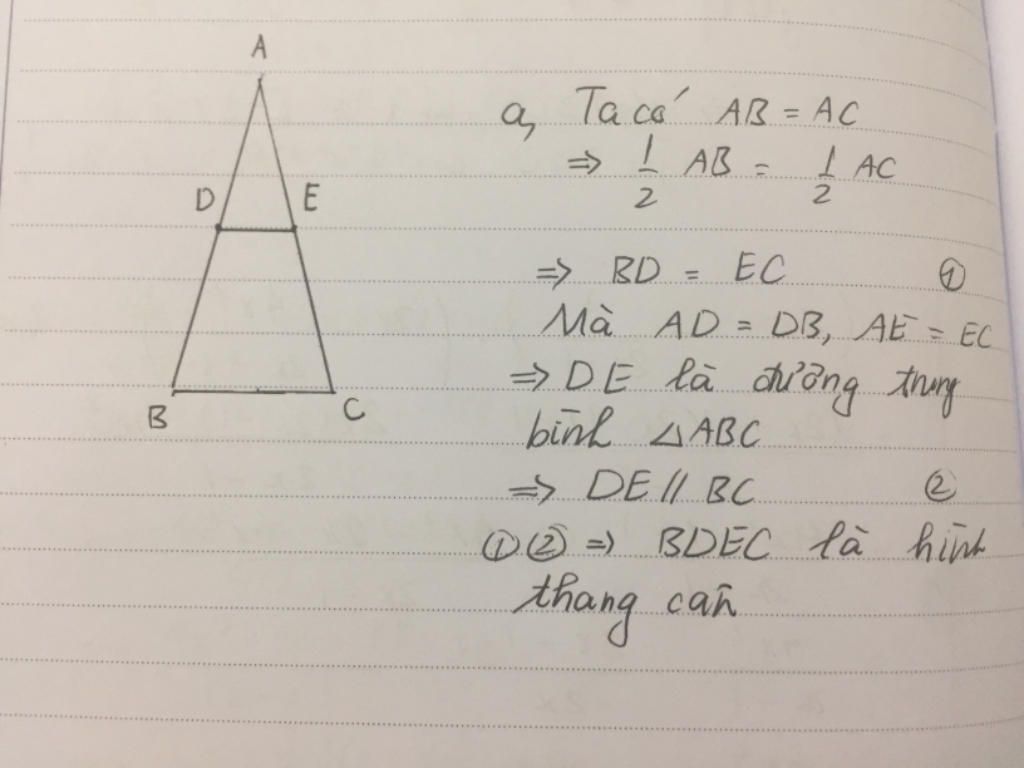 A
D E
B C
a, Ta có AB = AC
⇒ 1/2 AB = 1/2 AC
⇒ BD = EC ①
Mà AD = DB, AE = EC
⇒ DE là đường trung
bình △ABC
⇒ DE // BC ②
①② ⇒ BDEC là hình
thang cân